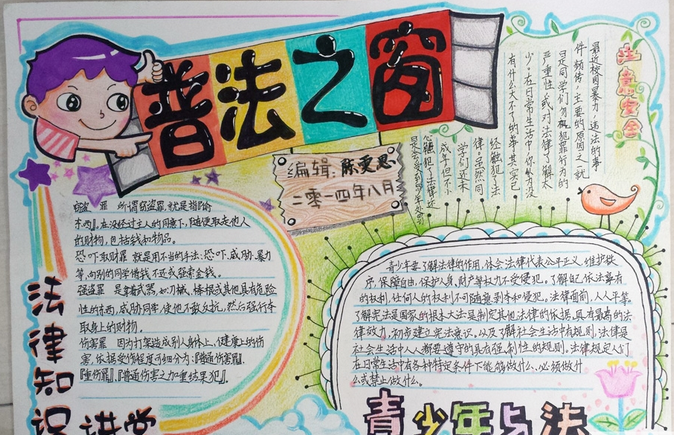 普法之窗
编辑:陈雯思
二零一四年八月
注意安全
最近校园暴力,违法的事
件频传,主要的原因之就
是同学们勿视犯罪行为的
严重性或对法律了解太
少。在日常生活中,你认为没
有什么大不了的事,其实已
经触犯法
律。虽然同
学们还未
成年,但不
盗窃罪 所谓窃盗罪,就是指「偷
东西」,在没经过主人的同意下,随便取走他人
的财物,包括钱和物品。
恐吓取财罪 就是用不当的手法:恐吓、威胁、暴力
等,向别的同学借钱不还或强索金钱。
强盗罪 是拿武器,如刀械、棒棍或其他具有危
险性的东西,威胁同学,使他不敢反抗,然后强行夺
取身上的财物。
伤害罪 因为打架造成别人身体上、健康上的伤
害,依据受伤程度可细分为:「普通伤害罪」、
「重伤罪」、「普通伤害之加重结果犯」。
法律知识讲堂
青少年要了解法律的作用,体会法律代表公平正义,维护秩
序,保障自由,保护人身、财产等权力不受侵犯,了解自己依法享有
的权利,任何人的权利不可随意剥夺和侵犯,法律面前,人人平等。
了解宪法是国家的根本大法是制定其他法律的依据,具有最高的法
律效力,初步建立宪法意识,以及了解社会生活中有规则,法律是
社会生活中人人都要遵守的具有强制性的规则,法律规定人们
在日常生活中有各种特定条件下能够做什么、必须做什
么或禁止做什么。
青少年与法